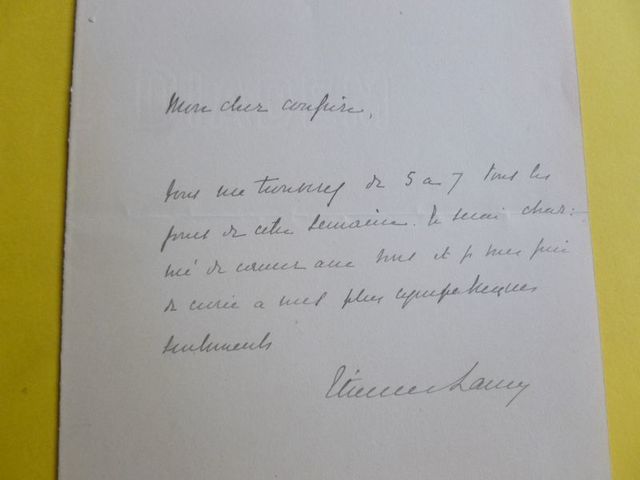 Mon cher confrère,
vous me trouverez de 5 à 7 tous les
jours de cette semaine. Je serai char-
mé de causer avec vous et je vous prie
de croire à mes plus sympathiques
sentiments
Etienne Lamy